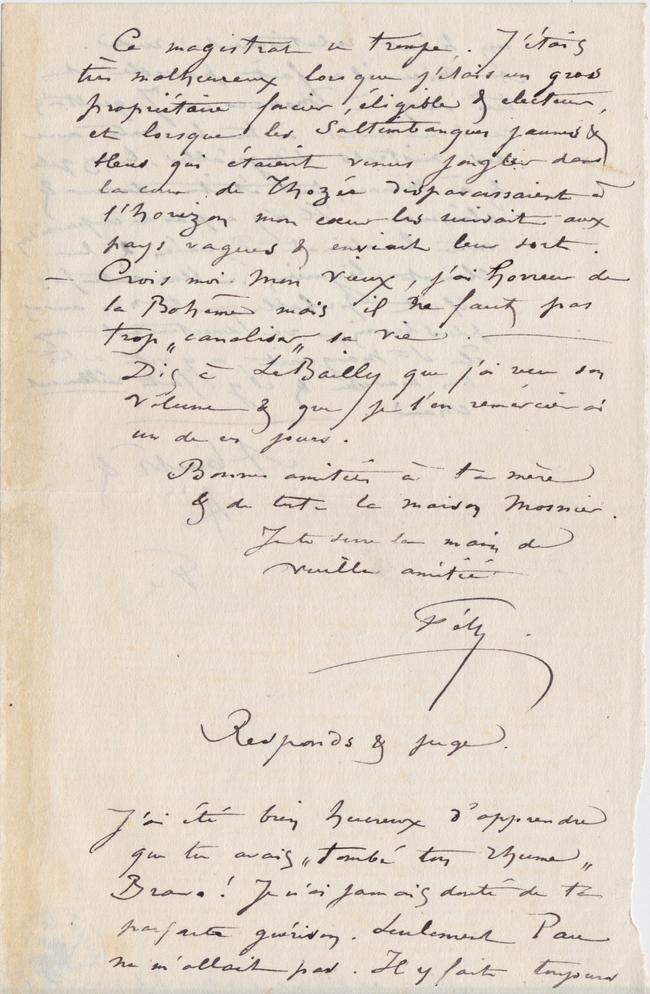 Ce magistrat se trompe. J'étais
très malheureux lorsque j'étais un gros
propriétaire foncier, éligible & electeur,
et lorsque les Saltimbanques jaunes &
bleus qui étaient venus jongler dans
la cour de Thozée disparaissaient à
l'horizon mon cœur les suivait aux
pays vagues & enviait leur sort.
– Crois moi mon vieux, j'ai horreur de
la Bohême mais il ne faut pas
trop „canaliser„ sa vie. —
Dis à LeBailly que j'ai reçu son
volume & que je l'en remercierai
un de ces jours.
Bonnes amitiés à ta mère
& de toute la maison
Je te serre la main de
vieille amitié
Fély.
Responds & juge.
J'ai été bien heureux d'apprendre
que tu avais „tombé ton rhume„
Bravo! Je n'ai jamais douté de ta
parfaite guérison. Seulement Pau
ne m'allait pas. Il y fait toujours